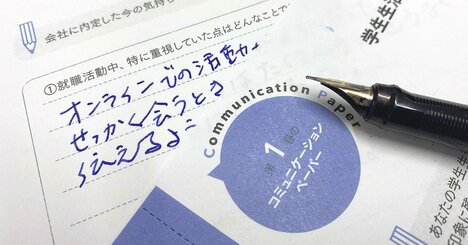 会社に内定した今の気持ち
①就職活動中、特に重視していた点はどんなことで
オンラインでの活動
せっかく会うとき
伝えるよ
Communication Paper
第1弾の
コミュニケーション
ペーパー
学生生活
あなたの学生生
印象に残